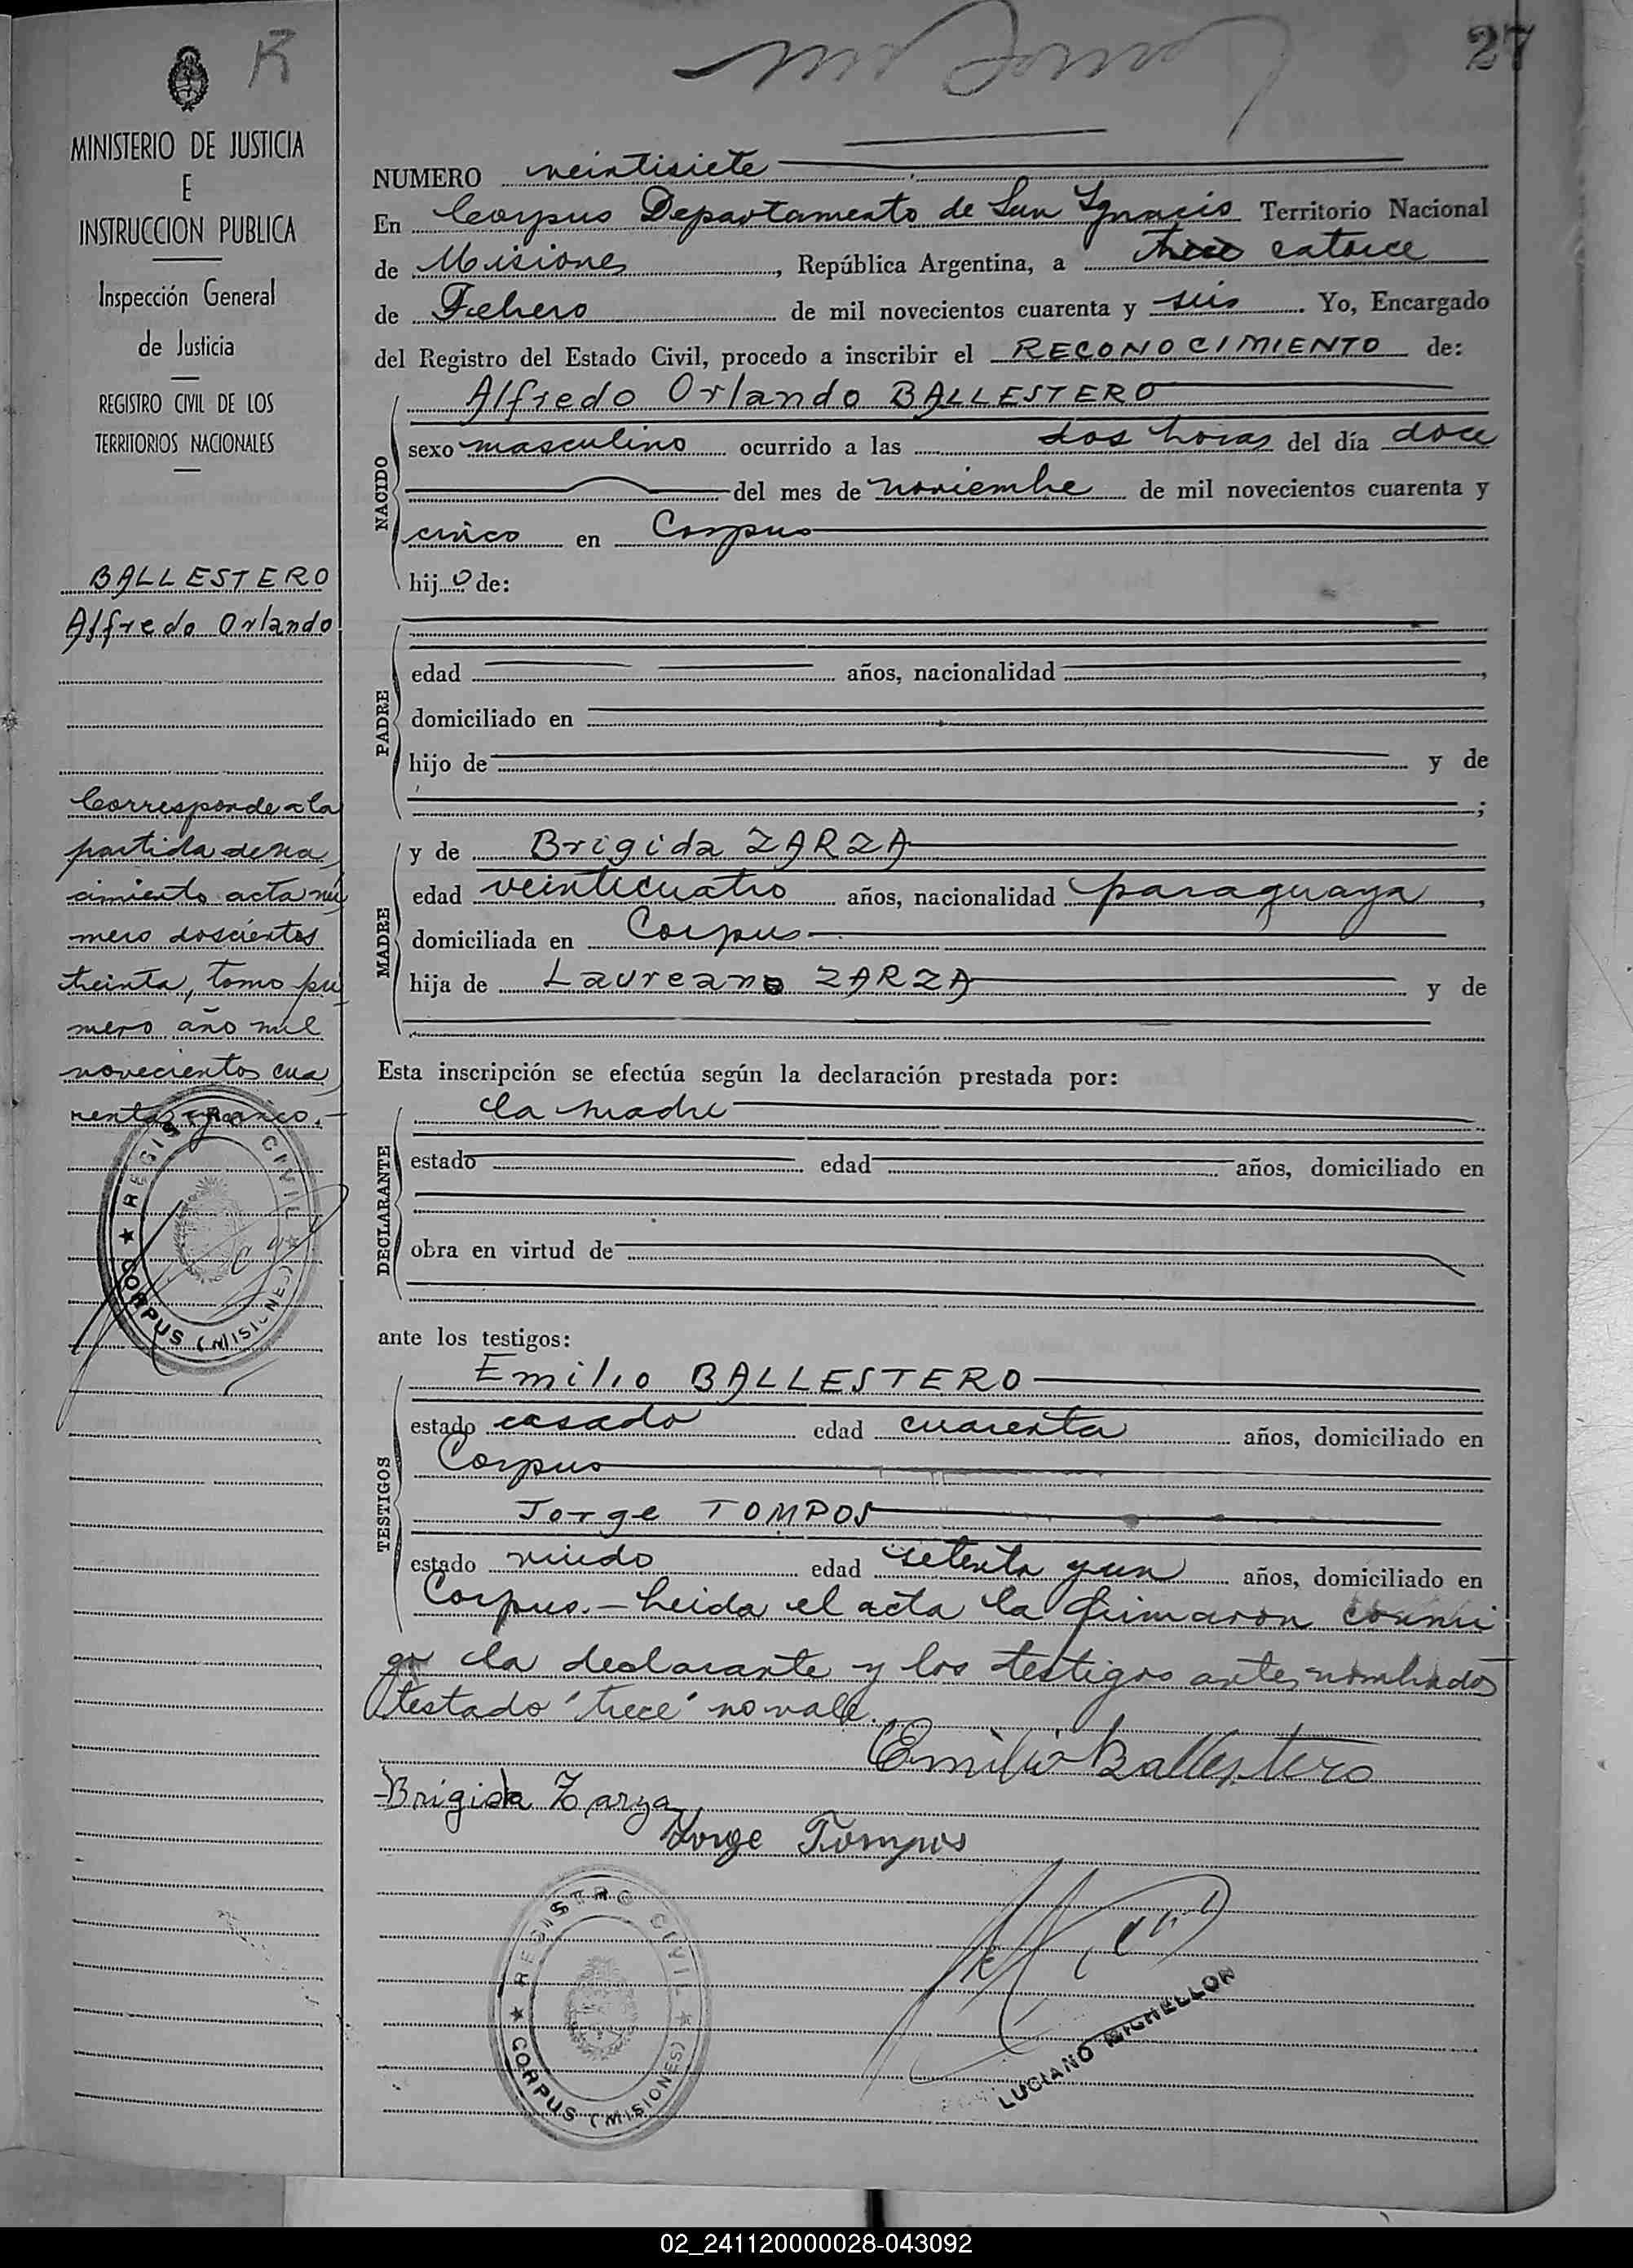 R
27
MINISTERIO DE JUSTICIA
E
INSTRUCCION PUBLICA
Inspección General
de Justicia
REGISTRO CIVIL DE LOS
TERRITORIOS NACIONALES
BALLESTERO
Alfredo Orlando
Corresponde a la
partida de na
cimiento acta nú
mero doscientos
treinta, tomo pri
mero año mil
novecientos cua
renta y cinco.-
REGISTRO CIVIL
CORPUS (MISIONES)
NUMERO veintisiete
En Corpus Departamento de San Ignacio Territorio Nacional
de Misiones, República Argentina, a trece catorce
de Febrero de mil novecientos cuarenta y seis. Yo, Encargado
del Registro del Estado Civil, procedo a inscribir el RECONOCIMIENTO de:
Alfredo Orlando BALLESTERO
NACIDO
sexo masculino ocurrido a las dos horas del día doce
del mes de noviembre de mil novecientos cuarenta y
cinco en Corpus
hijo de:
PADRE
edad años, nacionalidad ,
domiciliado en
hijo de y de
;
MADRE
y de Brigida ZARZA
edad veinticuatro años, nacionalidad paraguaya,
domiciliada en Corpus
hija de Laureano ZARZA y de
Esta inscripción se efectúa según la declaración prestada por:
DECLARANTE
la madre
estado edad años, domiciliado en
obra en virtud de
ante los testigos:
TESTIGOS
Emilio BALLESTERO
estado casado edad cuarenta años, domiciliado en
Corpus
Jorge TOMPOS
estado viudo edad setenta y un años, domiciliado en
Corpus.- Leida el acta la firmaron conmi
go la declarante y los testigos antes nombrados
testado "trece" no vale.
Emilio Ballestero
Brigida Zarza
Jorge Tompos
REGISTRO CIVIL
CORPUS (MISIONES)
LUCIANO MICHELLON
02_241120000028-043092